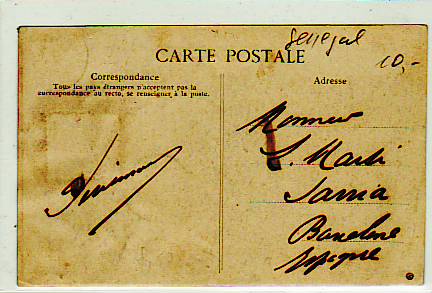 Senegal
10,-
CARTE POSTALE
Correspondance
Tous les pays étrangers n'acceptent pas la
correspondance au recto, se renseigner à la poste.
Adresse
Monsieur
Marti
Sarria
Barcelone
Espagne